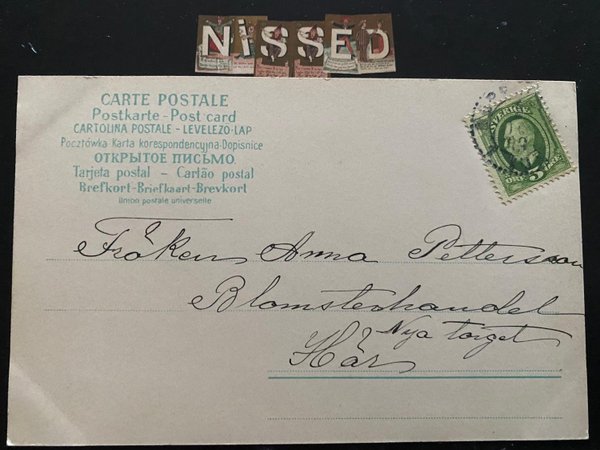 NiSSED
CARTE POSTALE
Postkarte - Post card
CARTOLINA POSTALE - LEVELEZO-LAP
Pocztówka Karta korespondencyjna-Dopisnice
ОТКРЫТОЕ ПИСЬМО.
Tarjeta postal - Cartão postal
Brefkort-Briefkaart-Brevkort
Union postale universelle
SVERIGE
5
Fröken Anna Pettersson
Blomsterhandel
Nya torget
Här